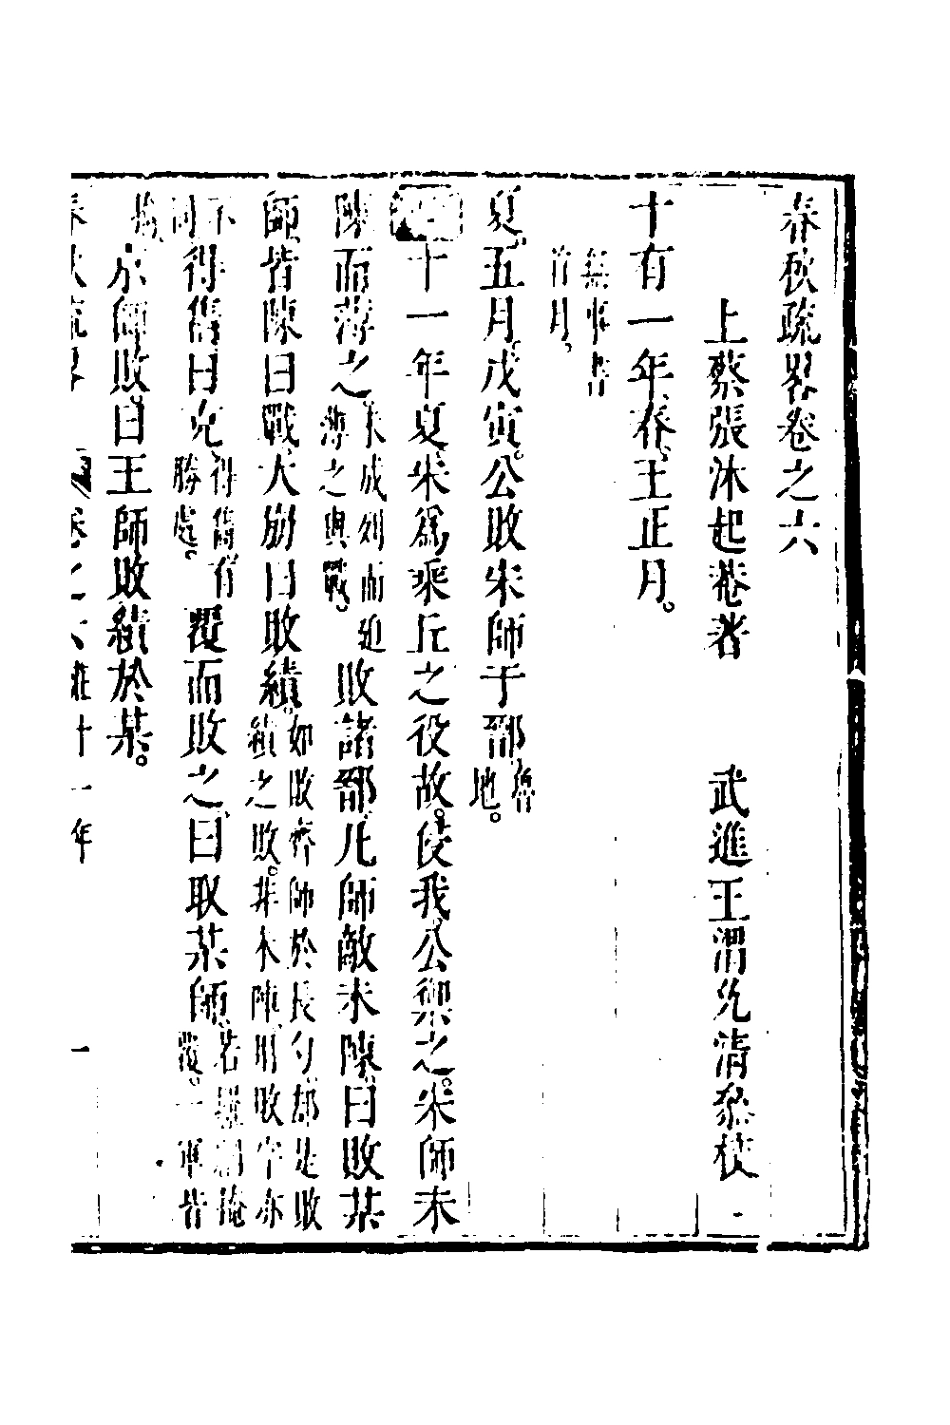 春秋疏畧卷之六
上蔡張沐起菴著　武進王渭允清叅校
十有一年春王正月。
無事書首月。
夏五月戊寅。公敗宋師于鄑。魯地。
十一年夏宋為乘丘之役故。侵我公禦之。宋師未
陳而薄之未成列而廹薄之與戰。敗諸鄑凡師敵未陳曰敗某
師皆陳曰戰大崩曰敗績如敗齊師於長勺却是敗績之敗。非未陳明敗字亦
不同得儁曰克得儁有勝處。覆而敗之曰取某師若羅網掩覆。一軍皆
京師敗曰王師敗績於某。
春秋疏畧　卷之六莊十一年　一